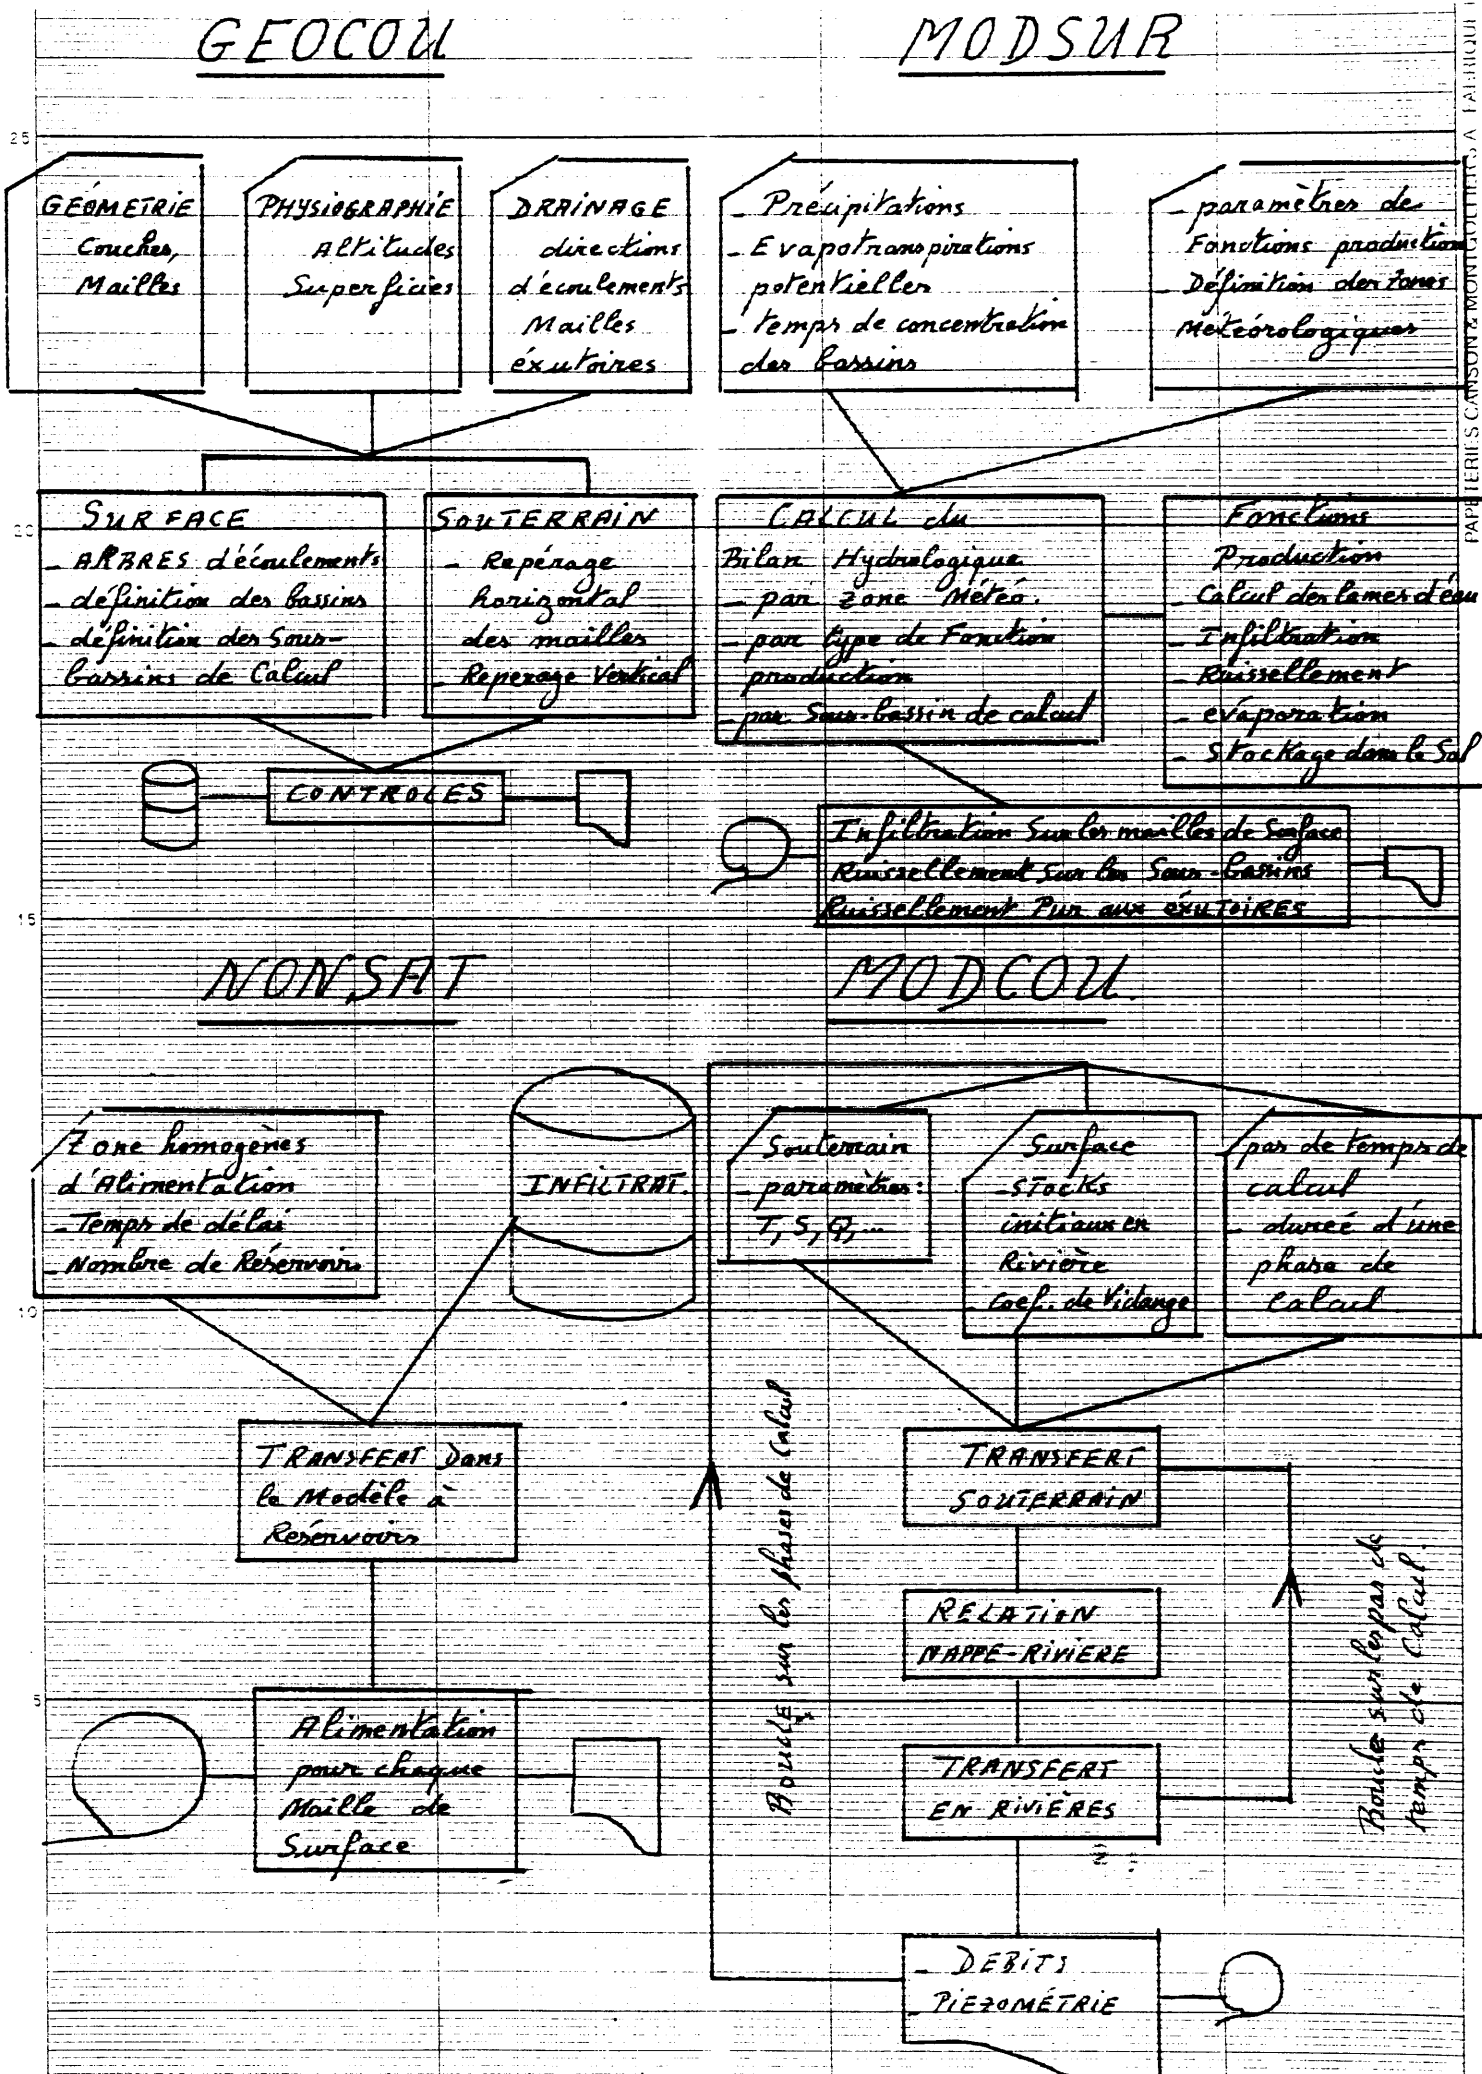 GEOCOU
MODSUR
25
GÉOMETRIE
Couches,
Mailles
PHYSIOGRAPHIE
Altitudes
Superficies
DRAINAGE
directions
d'écoulements
Mailles
éxutoires
- Précipitations
- Evapotranspirations
potentielles
- temps de concentration
des bassins
- paramètres de
Fonctions production
- Définition des zones
Météorologiques
20
SURFACE
- ARBRES d'écoulements
- définition des bassins
- définition des Sous-
bassins de Calcul
SOUTERRAIN
- Repérage
horizontal
des mailles
- Reperage Vertical
CALCUL du
Bilan Hydrologique
- par zone Météo.
- par type de Fonction
production
- par Sous-bassin de calcul
Fonctions
Production
- Calcul des lames d'eau
- Infiltration
- Ruissellement
- évaporation
- Stockage dans le Sol
CONTROLES
Infiltration Sur les mailles de Surface
Ruissellement Sur les Sous-bassins
Ruissellement Pur aux éxUTOIRES
15
NONSAT
MODCOU.
Zone homogènes
d'Alimentation
- Temps de délai
- Nombre de Réservoirs
INFILTRAT.
Souterrain
- paramètres:
T, S, Q, ...
Surface
- STocks
initiaux en
Rivière
- Coef. de Vidange
- pas de temps de
calcul
- dureé d'une
phase de
calcul
10
TRANSFERT Dans
le Modèle à
Réservoirs
TRANSFERT
SOUTERRAIN
RELATION
NAPPE-RIVIERE
TRANSFERT
EN RIVIÈRES
Boucle sur les phases de Calcul
Boucle sur les pas de
temps de Calcul.
5
Alimentation
pour chaque
Maille de
Surface
- DEBITS
- PIEZOMÉTRIE
PAPETERIES CANSON & MONTGOLFIER S A